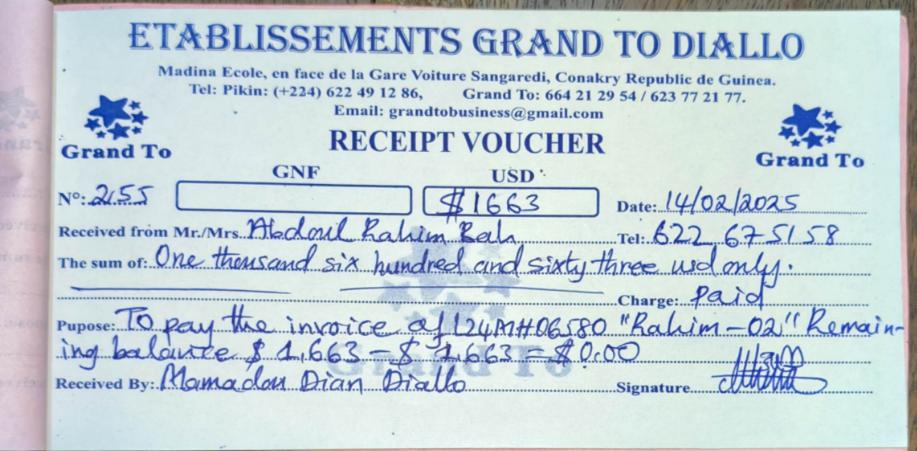 ETABLISSEMENTS GRAND TO DIALLO
Madina Ecole, en face de la Gare Voiture Sangaredi, Conakry Republic de Guinea.
Tel: Pikin: (+224) 622 49 12 86, Grand To: 664 21 29 54 / 623 77 21 77.
Email: grandtobusiness@gmail.com
RECEIPT VOUCHER
Grand To
Grand To
GNF USD
N°: 2155 $1663 Date: 14/02/2025
Received from Mr./Mrs. Abdoul Rahim Bah Tel: 622 67 51 58
The sum of: One thousand six hundred and sixty three usd only.
Charge: Paid
Pupose: To pay the invoice of L24MH06580 "Rahim-02" Remain-
ing balance $ 1,663 - $ 1,663 = $ 0.00
Grand To
Received By: Mamadou Dian Diallo Signature